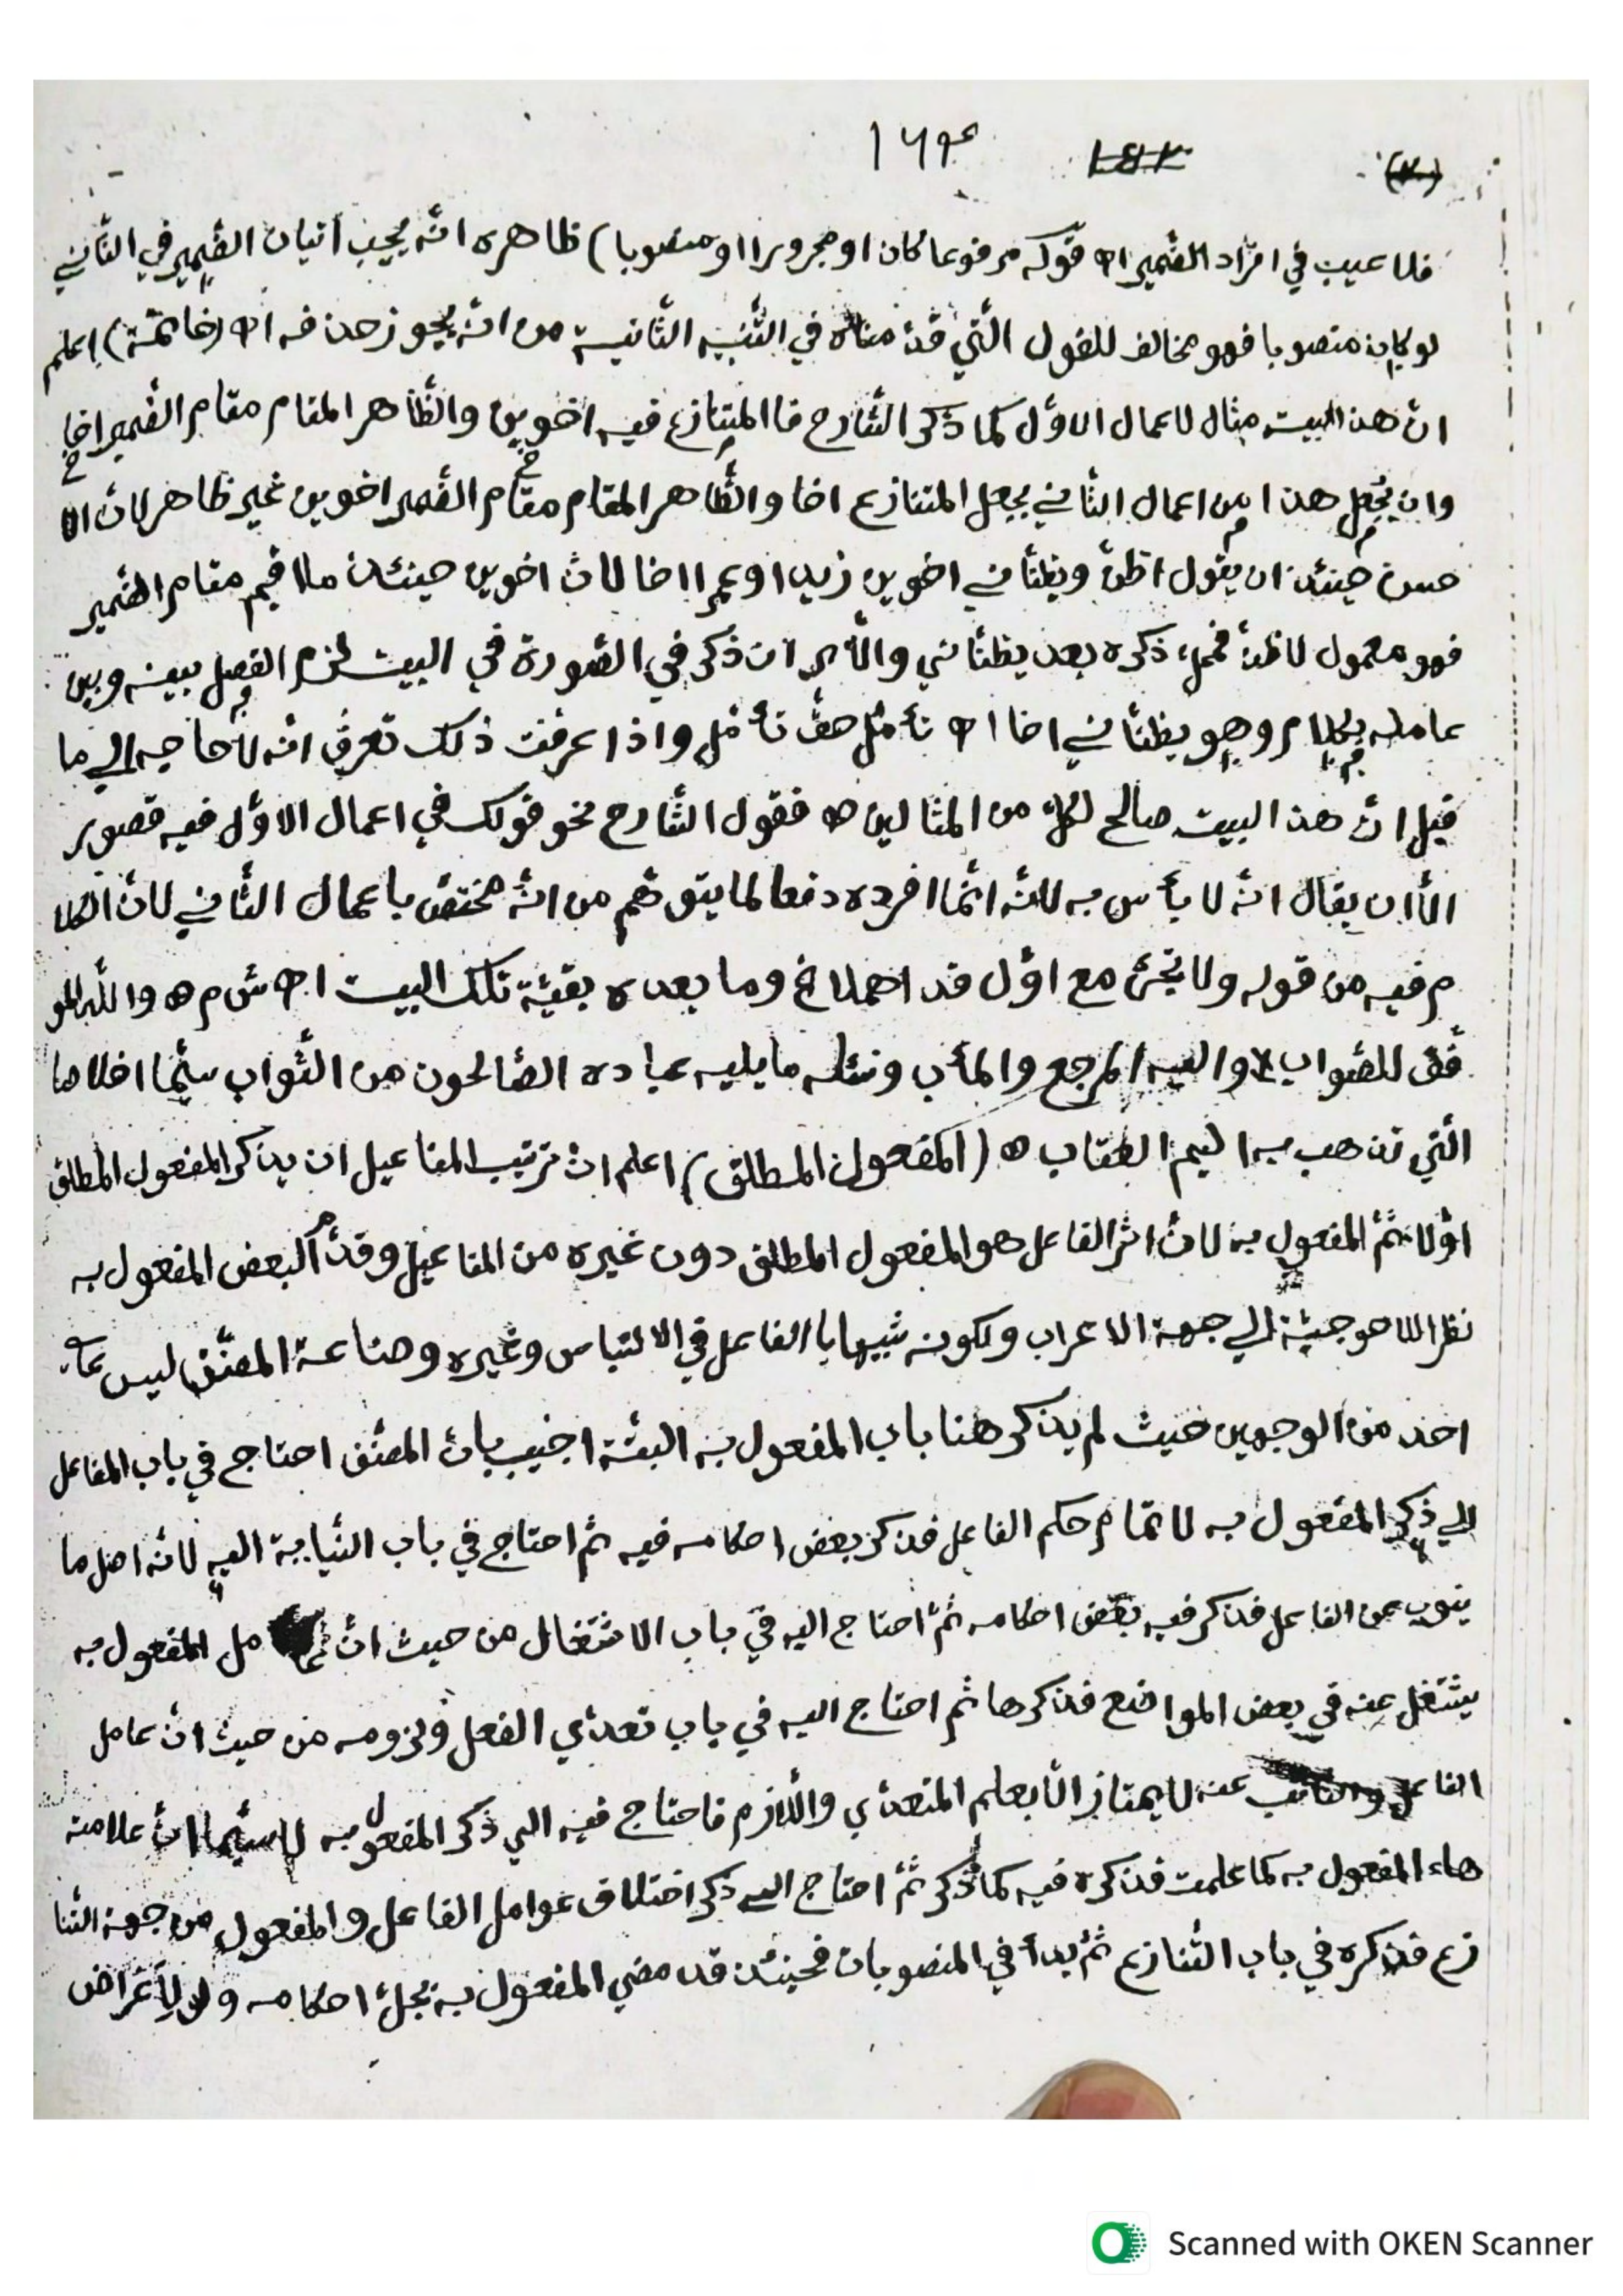 ١٦٣
فلا عيب في افراد الضّمير اه قوله مرفوعا كان او مجرورا او منصوبا) ظاهره انّه يجب اتيان الضّمير في الثّاني
لو كان منصوبا فهو مخالف للقول الّتي قدّمناه في التّنبيه الثّانية من انّه يجوز حذفه اه (خاتمة) اعلم
انّ هذا البيت مثال لاعمال الاوّل كما ذكر الشّارح فالمتنازع فيه اخوين والظّاهر المقام مقام الضّمير اخا
وان يجعل هذا من اعمال الثّاني يجعل المتنازع اخا والظّاهر المقام مقام الضّمير اخوين غير ظاهر لانّ
حسن حينئذ ان يقول اظنّ ويظنّاني اخوين زيدا وعمرا اخا لانّ اخوين حينئذ ملا قيم مقام الضمير
فهو معمول لاظنّ فمحلّ ذكره بعد يظنّاني والّا بر ان ذكر في الصّورة في البيت لزم الفصل بينه وبين
عامله بكلام وهو يظنّاني اخا اه تأمّل حقّ تأمّل واذا عرفت ذلك تعرف انّه لا حاجه الي ما
قيل انّ هذا البيت صالح لكلّ من المثالين اه فقول الشّارح نحو قولك في اعمال الاوّل فيه قصور
الّا ان يقال انّه لا بأس به لانّه انّما افرده دفعا لما يتوهّم من انّه مختصّ باعمال الثّاني لانّ الكلا
م فيه من قوله ولا تجئ مع اوّل قد اهملا الخ وما بعده بقيّة تلك البيت اه ش م اه والله المو
فّق للصّواب واليه المرجع والمأب ونسئله ما يليه عباده الصّالحون من الثّواب سيّما اخلاصا
الّتي تذهب به اليم العقاب اه (المفعول المطلق) اعلم انّ ترتيب المفاعيل ان يذكر المفعول المطلق
اوّلا ثمّ المفعول به لانّ اثر الفاعل هو المفعول المطلق دون غيره من المفاعيل وقدّم البعض المفعول به
نظرا للاحوجيّة الي جهة الاعراب ولكونه شبيها بالفاعل في الالتباس وغيره وصناعة المصنّف ليس علي
احد من الوجهين حيث لم يذكر هنا باب المفعول به البتّة اجيب بانّ المصنّف احتاج في باب الفاعل
الي ذكر المفعول به لاتمام حكم الفاعل فذكر بعض احكامه فيه ثمّ احتاج في باب النّيابة اليه لانّه اصل ما
ينوب عن الفاعل فذكر فيه بعض احكامه ثمّ احتاج اليه في باب الاشتغال من حيث انّ عامل المفعول به
يشتغل عنه في بعض المواضع فذكرها ثمّ احتاج اليه في باب تعدّي الفعل ولزومه من حيث انّ عامل
الفاعل والنائب عنه لا يمتاز الّا بعلم المتعدّي واللّازم فاحتاج فيه الي ذكر المفعول به لا سيّما انّ علامته
هاء المفعول به كما علمت فذكره فيه كما ذكر ثمّ احتاج الي ذكر اختلاف عوامل الفاعل والمفعول من جهة التّنا
زع فذكره في باب التّنازع ثمّ بدأ في المنصوبات فحينئذ قد مضي المفعول به بجلّ احكامه ولو لأغراض
Scanned with OKEN Scanner